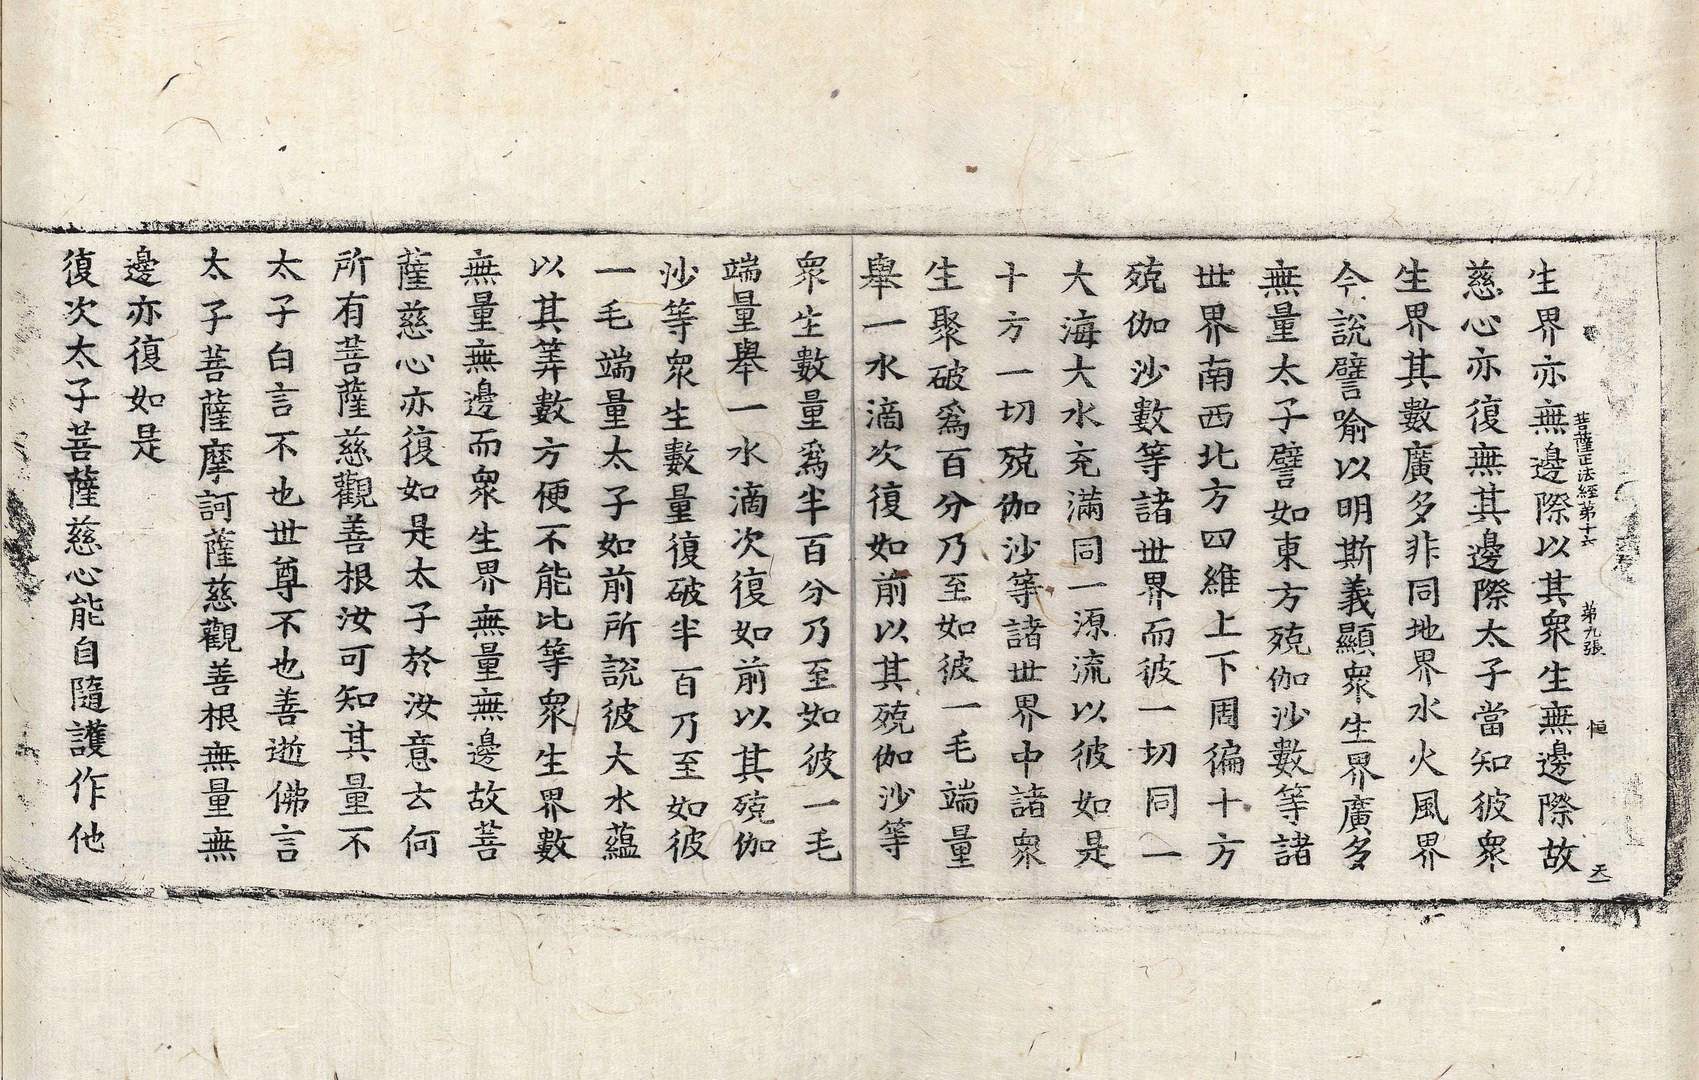 菩薩正法經第十六 第九張 恒
生界亦無邊際以其衆生無邊際故
慈心亦復無其邊際太子當知彼衆
生界其數廣多非同地界水火風界
今說譬喻以明斯義顯衆生界廣多
無量太子譬如東方殑伽沙數等諸
世界南西北方四維上下周徧十方
殑伽沙數等諸世界而彼一切同一
大海大水充滿同一源流以彼如是
十方一切殑伽沙等諸世界中諸衆
生聚破爲百分乃至如彼一毛端量
舉一水滴次復如前以其殑伽沙等
衆生數量爲半百分乃至如彼一毛
端量舉一水滴次復如前以其殑伽
沙等衆生數量復破半百乃至如彼
一毛端量太子如前所說彼大水蘊
以其筭數方便不能比等衆生界數
無量無邊而衆生界無量無邊故菩
薩慈心亦復如是太子於汝意云何
所有菩薩慈觀善根汝可知其量不
太子白言不也世尊不也善逝佛言
太子菩薩摩訶薩慈觀善根無量無
邊亦復如是
復次太子菩薩慈心能自隨護作他